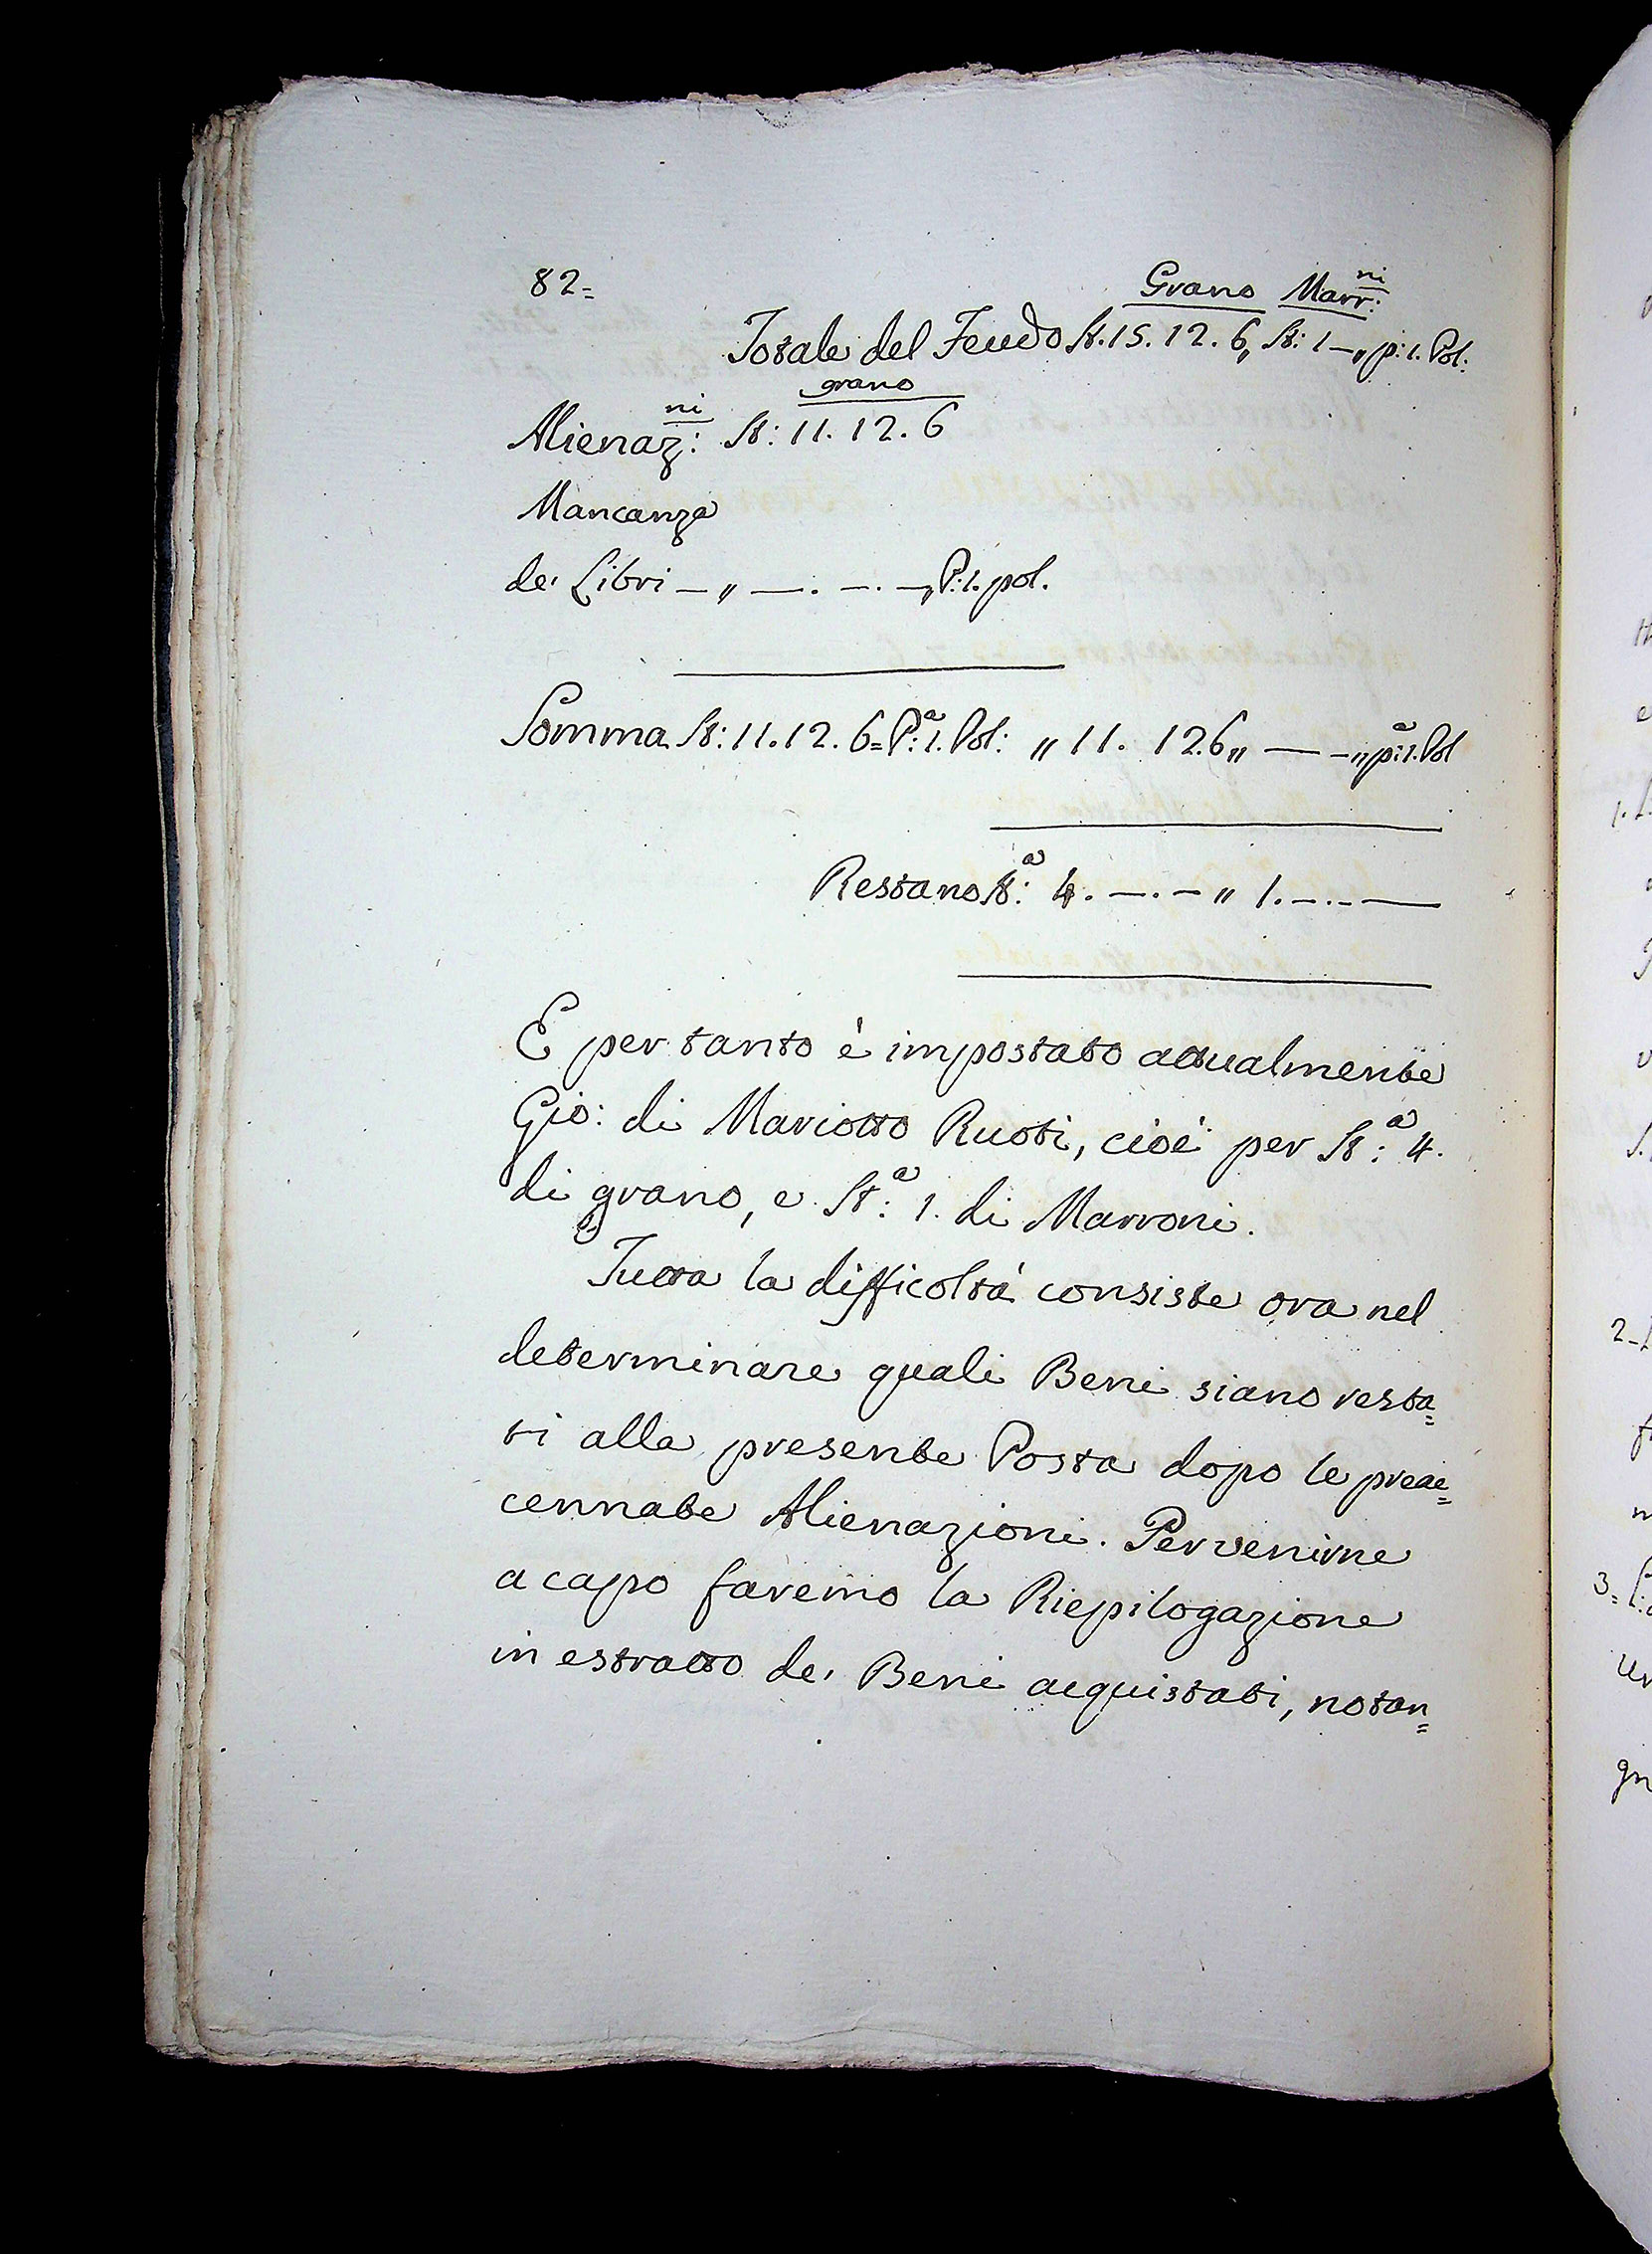 82=
Grano Marr:ni
Totale del Feudo St. 15. 12. 6„ St: 1 —„ p: 1. Pol:
grano
Alienaz:ni St: 11. 12. 6
Mancanza
de' Libri — „ — . — . —„ P: 1. pol.
Somma St: 11. 12. 6= P:a 1. Pol: „ 11. 12. 6 „ — —„ p:a 1. Pol
Restano St:a 4. — . — „ 1. — . — —
E per tanto è impostato attualmente
Gio: di Mariotto Ruoti, cioè per St:a 4.
di grano, e St:a 1. di Marroni.
Tutta la difficoltà consiste ora nel
determinare quali Beni siano resta=
ti alla presente Posta dopo le preac=
cennate Alienazioni. Per venirne
a capo faremo la Riepilogazione
in estratto de' Beni acquistati, notan=